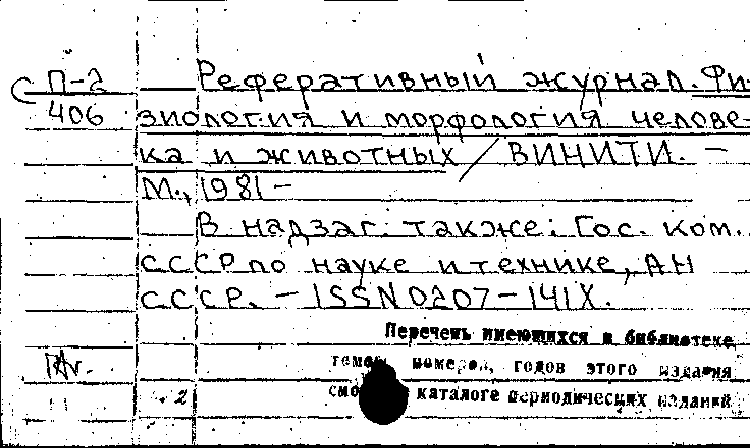 П-2 Реферативный журнал. Фи-
406 зиология и морфология челове-
ка и животных / ВИНИТИ. —
М., 1981 —
В надзаг. также: Гос. ком.
СССР по науке и технике, АН
СССР. — ISSN 0207-141X.
Перечень имеющихся в библиотеке
номеров, годов этого издания
каталоге периодических изданий
2